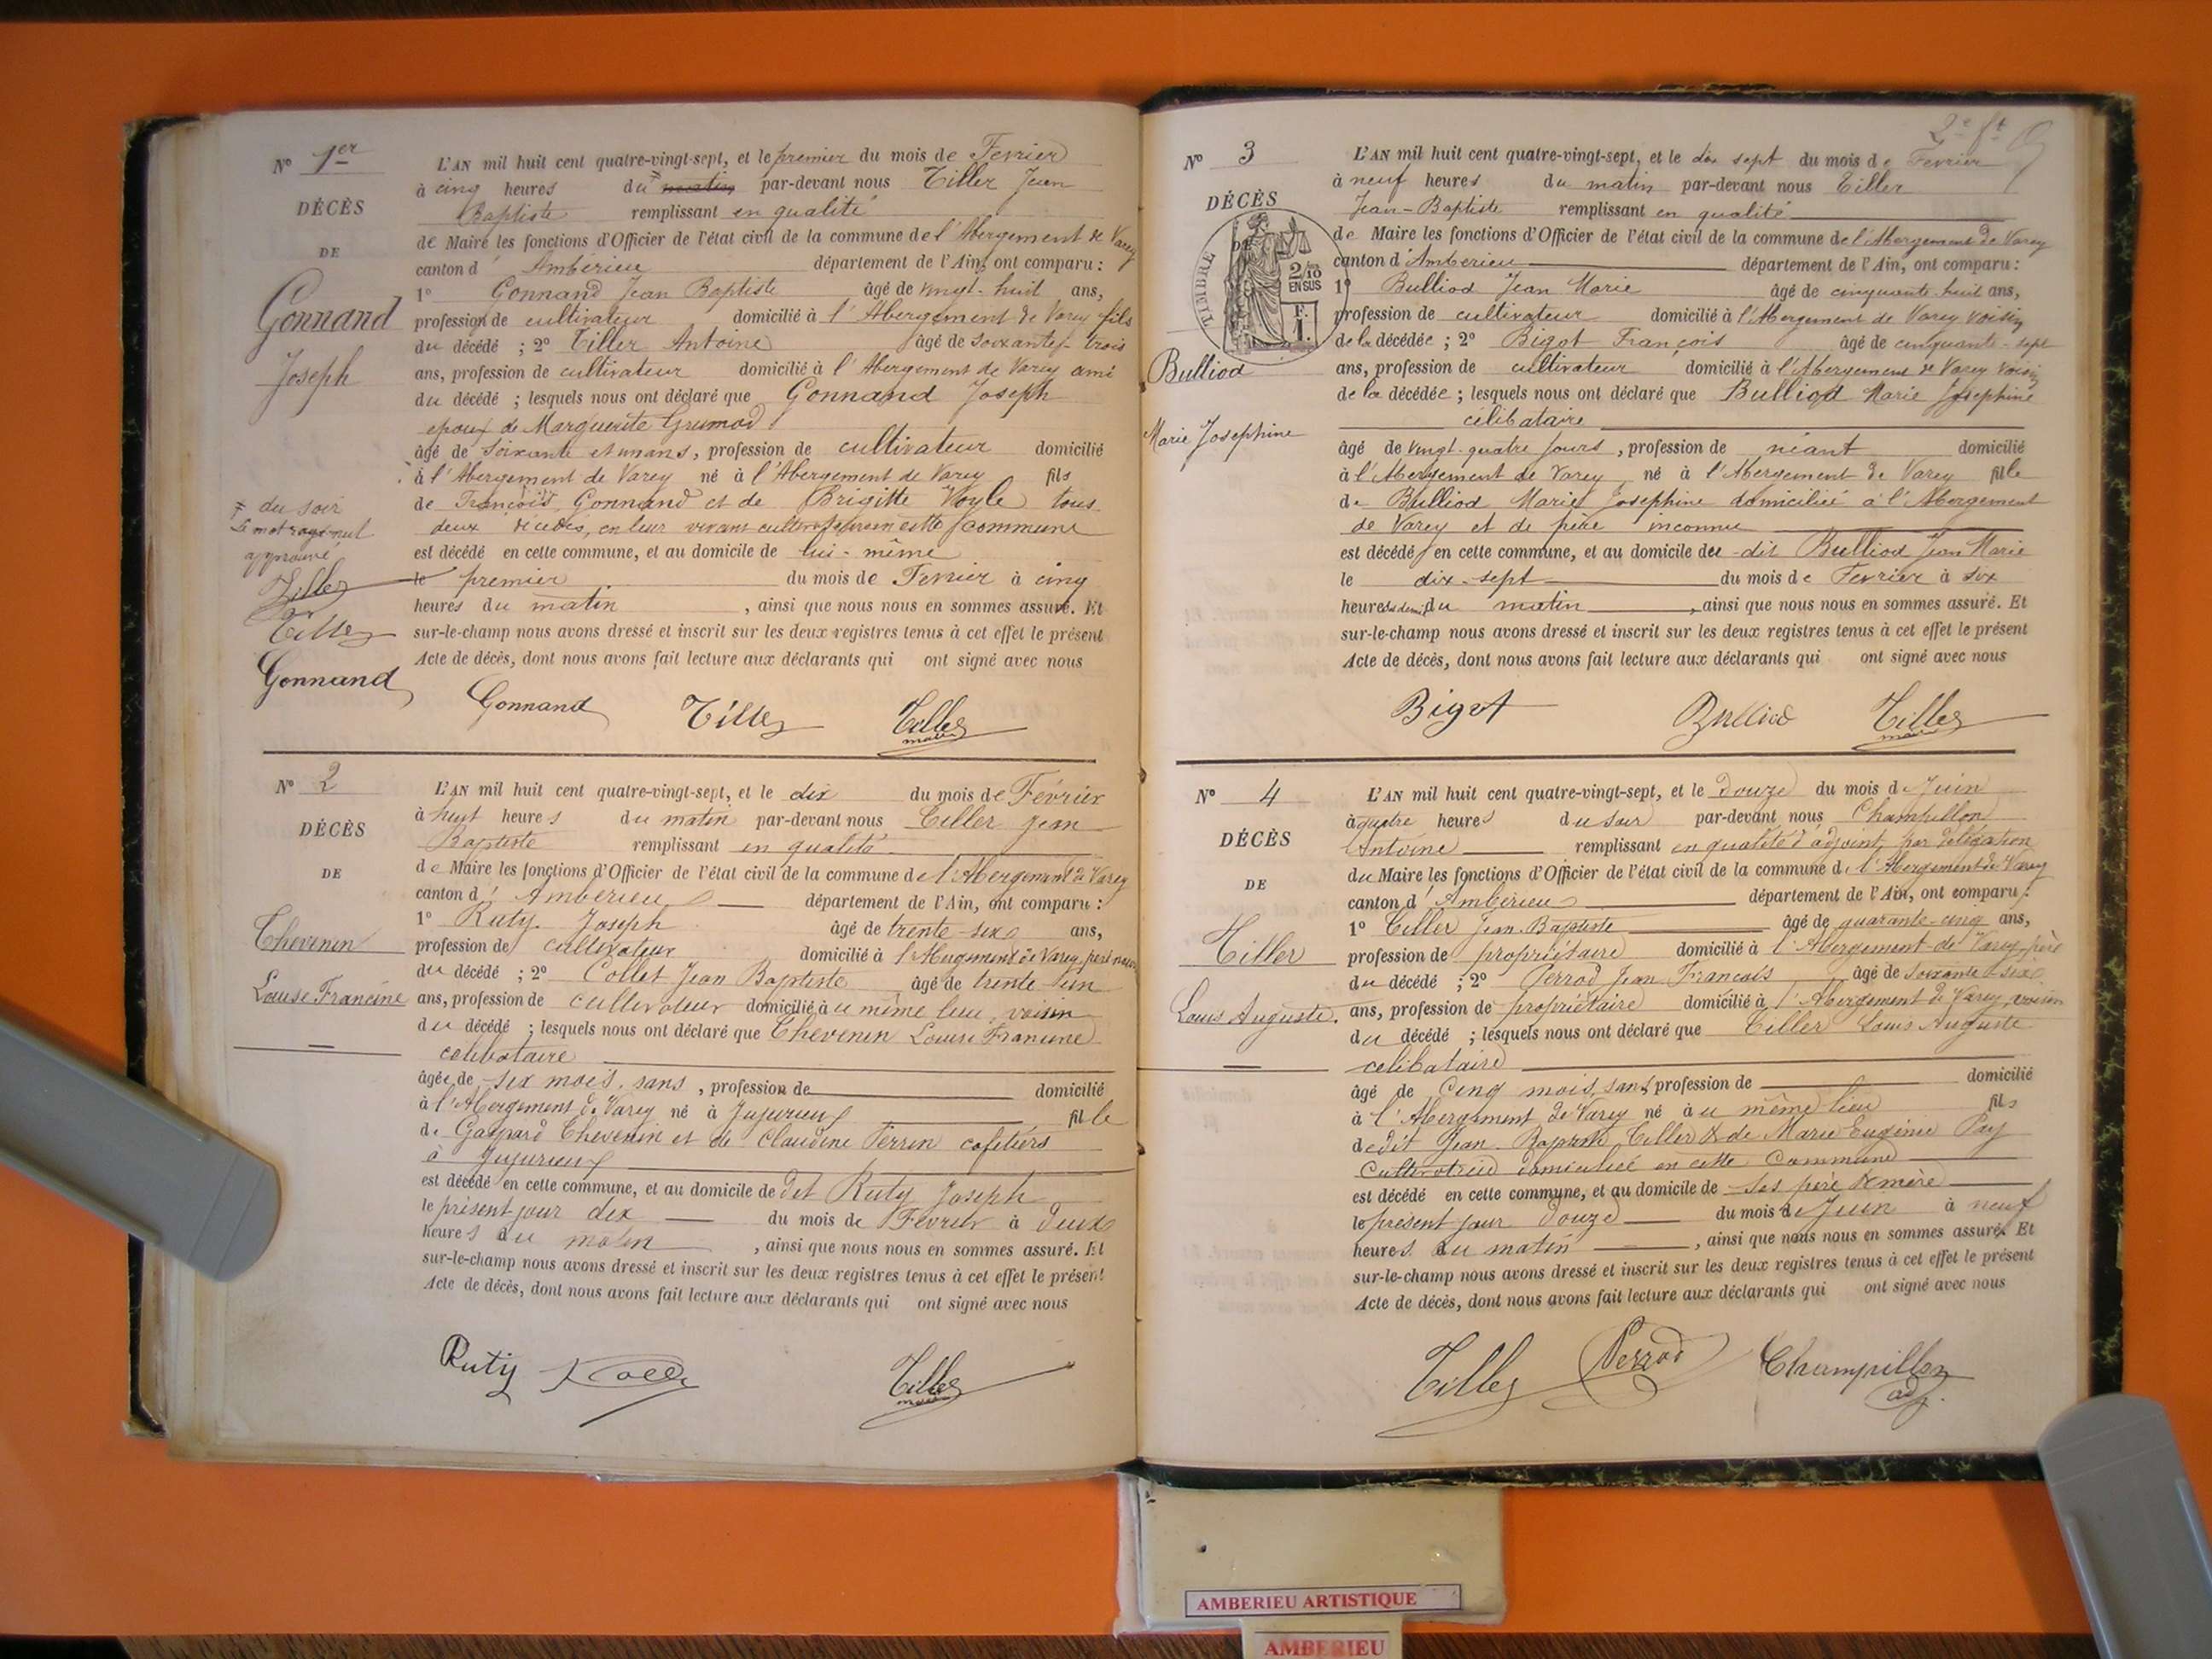 N° 1er
DÉCÈS
DE
Gonnand
Joseph
du soir
Le mot rayé nul
approuvé
Tiller
Tiller
Gonnand
L'AN mil huit cent quatre-vingt-sept, et le premier du mois de Fevrier
à cinq heures du matin par-devant nous Tiller Jean
Baptiste remplissant en qualité
de Maire les fonctions d'Officier de l'état civil de la commune de l'Abergement de Varey
canton d'Ambérieu département de l'Ain, ont comparu :
1° Gonnand Jean Baptiste âgé de vingt-huit ans,
profession de cultivateur domicilié à l'Abergement de Varey fils
du décédé ; 2° Tiller Antoine âgé de soixante trois
ans, profession de cultivateur domicilié à l'Abergement de Varey ami
du décédé ; lesquels nous ont déclaré que Gonnand Joseph
epoux de Marguerite Grumod
âgé de soixante et un ans, profession de cultivateur domicilié
à l'Abergement de Varey né à l'Abergement de Varey fils
de François Gonnand et de Brigitte Voyle tous
deux décédés, en leur vivant cette commune
est décédé en cette commune, et au domicile de lui-même
le premier du mois de Fevrier à cinq
heures du matin, ainsi que nous nous en sommes assuré. Et
sur-le-champ nous avons dressé et inscrit sur les deux registres tenus à cet effet le présent
Acte de décès, dont nous avons fait lecture aux déclarants qui ont signé avec nous
Gonnand Tiller Tiller
maire
N° 2
DÉCÈS
DE
Thevenin
Louise Francine
L'AN mil huit cent quatre-vingt-sept, et le dix du mois de Février
à huit heures du matin par-devant nous Tiller Jean
Baptiste remplissant en qualité
de Maire les fonctions d'Officier de l'état civil de la commune de l'Abergement de Varey
canton d'Ambérieu département de l'Ain, ont comparu :
1° Ruty Joseph âgé de trente-six ans,
profession de cultivateur domicilié à l'Abergement de Varey, père
du décédé ; 2° Collet Jean Baptiste âgé de trente un
ans, profession de cultivateur domicilié au même lieu, voisin
du décédé ; lesquels nous ont déclaré que Thevenin Louise Francine
celibataire
âgée de six mois, sans, profession de domicilié
à l'Abergement de Varey né à Jujurieux fille
de Gaspard Thevenin et de Claudine Perrin cafetiers
à Jujurieux
est décédé en cette commune, et au domicile de dit Ruty Joseph
le présent jour dix du mois de Fevrier à deux
heures du matin, ainsi que nous nous en sommes assuré. Et
sur-le-champ nous avons dressé et inscrit sur les deux registres tenus à cet effet le présent
Acte de décès, dont nous avons fait lecture aux déclarants qui ont signé avec nous
Ruty Tiller
maire
N° 3
DÉCÈS
DE
TIMBRE
2/10
EN SUS
F.
1.
Bulliod
Marie Josephine
L'AN mil huit cent quatre-vingt-sept, et le dix sept du mois de Fevrier
à neuf heures du matin par-devant nous Tiller
Jean-Baptiste remplissant en qualité
de Maire les fonctions d'Officier de l'état civil de la commune de l'Abergement de Varey
canton d'Amberieu département de l'Ain, ont comparu :
1° Bulliod Jean Marie âgé de cinquante-huit ans,
profession de cultivateur domicilié à l'Abergement de Varey voisin
de la décédée ; 2° Bigot François âgé de cinquante-sept
ans, profession de cultivateur domicilié à l'Abergement de Varey voisin
de la décédée ; lesquels nous ont déclaré que Bulliod Marie Josephine
célibataire
âgé de vingt-quatre jours, profession de néant domicilié
à l'Abergement de Varey né à l'Abergement de Varey fille
de Bulliod Marie Josephine domiciliée à l'Abergement
de Varey et de père inconnu
est décédé en cette commune, et au domicile du dit Bulliod Jean Marie
le dix-sept du mois de Fevrier à six
heures du matin, ainsi que nous nous en sommes assuré. Et
sur-le-champ nous avons dressé et inscrit sur les deux registres tenus à cet effet le présent
Acte de décès, dont nous avons fait lecture aux déclarants qui ont signé avec nous
Bigot Bulliod Tiller
maire
N° 4
DÉCÈS
DE
Tiller
Louis Auguste.
L'AN mil huit cent quatre-vingt-sept, et le douze du mois de Juin
à quatre heures du soir par-devant nous Champillon
Antoine remplissant en qualité d'adjoint, par délégation
du Maire les fonctions d'Officier de l'état civil de la commune de l'Abergement de Varey
canton d'Ambérieu département de l'Ain, ont comparu :
1° Tiller Jean Baptiste âgé de quarante-cinq ans,
profession de propriétaire domicilié à l'Abergement de Varey, père
du décédé ; 2° Perrod Jean Francois âgé de soixante-six
ans, profession de propriétaire domicilié à l'Abergement de Varey, voisin
du décédé ; lesquels nous ont déclaré que Tiller Louis Auguste
celibataire
âgé de cinq mois, sans, profession de domicilié
à l'Abergement de Varey né au même lieu fils
de dit Jean Baptiste Tiller & de Marie Eugénie Pay
Cultivatrice domiciliée en cette Commune
est décédé en cette commune, et au domicile de ses père & mère
le présent jour douze du mois de Juin à neuf
heures du matin, ainsi que nous nous en sommes assuré. Et
sur-le-champ nous avons dressé et inscrit sur les deux registres tenus à cet effet le présent
Acte de décès, dont nous avons fait lecture aux déclarants qui ont signé avec nous
Tiller Perrod Champillon
adj.
AMBERIEU ARTISTIQUE
AMBERIEU